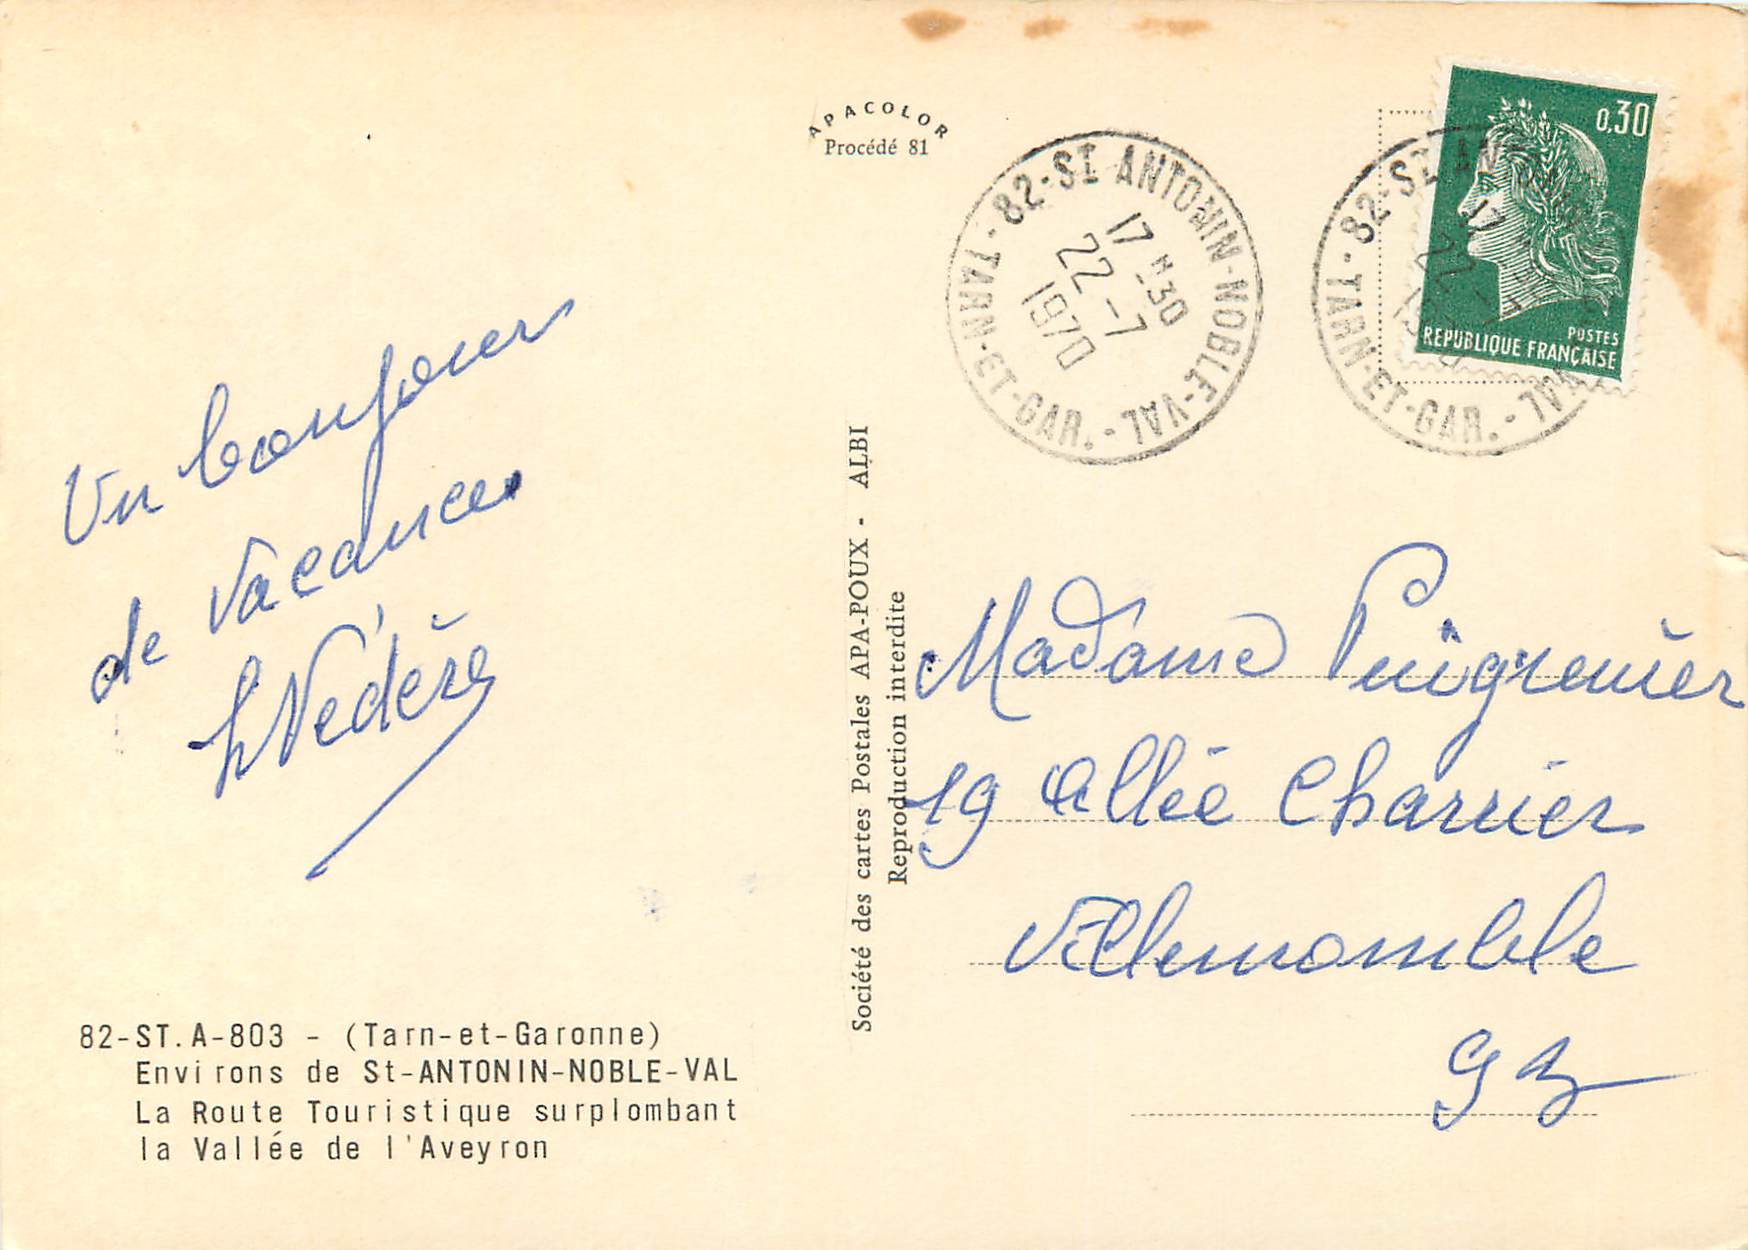 APACOLOR
Procédé 81
82-ST ANTONIN-NOBLE-VAL - TARN-ET-GAR. -
17 H 30
22-7
1970
82-ST AN VAL - TARN-ET-GAR. -
17
22-7
0,30
POSTES
REPUBLIQUE FRANÇAISE
Un bonjour
de vacances
Védère
Société des cartes Postales APA-POUX - ALBI
Reproduction interdite
Madame Puigrenier
19 Allée Charrier
Villemomble
93
82-ST.A-803 - (Tarn-et-Garonne)
Environs de St-ANTONIN-NOBLE-VAL
La Route Touristique surplombant
la Vallée de l'Aveyron